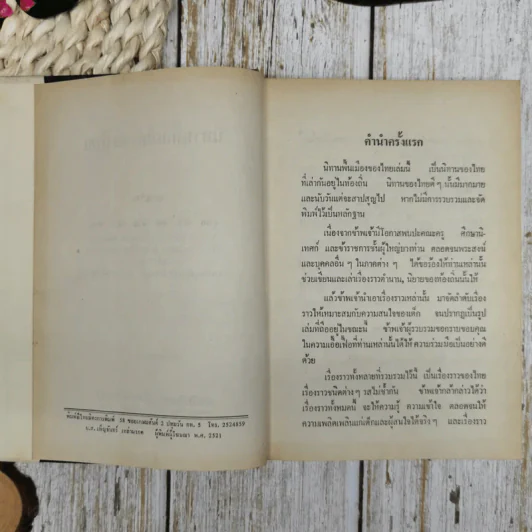 พิมพ์ที่โรงพิมพ์ 38 ซอยเกษมสันต์ 2 ปทุมวัน กท. 5 โทร. 2524859
ผู้พิมพ์ผู้โฆษณา พ.ศ. 2521
คำนำครั้งแรก
นิทานพื้นเมืองของไทยเล่มนี้ เป็นนิทานของไทย
ที่เล่ากันอยู่ในท้องถิ่น นิทานของไทยดี ๆ นั้นมีมากมาย
และนับวันแต่จะสาปสูญไป หากไม่มีการรวบรวมและจัด
พิมพ์ไว้เป็นหลักฐาน
เนื่องจากข้าพเจ้ามีโอกาสพบปะคณะครู ศึกษานิ-
เทศก์ และข้าราชการชั้นผู้ใหญ่บางท่าน ตลอดจนพระสงฆ์
และบุคคลอื่น ๆ ในภาคต่าง ๆ ได้ขอร้องให้ท่านเหล่านั้น
ช่วยเขียนและเล่าเรื่องราวตำนาน, นิยายของท้องถิ่นนั้นให้
แล้วข้าพเจ้านำเอาเรื่องราวเหล่านั้น มาจัดลำดับเรื่อง
ราวให้เหมาะสมกับความสนใจของเด็ก จนปรากฏเป็นรูป
เล่มที่ถืออยู่ในขณะนี้ ข้าพเจ้าผู้รวบรวมขอกราบขอบคุณ
ในความเอื้อเฟื้อที่ท่านเหล่านั้นได้ให้ความร่วมมือเป็นอย่างดี
ด้วย
เรื่องราวทั้งหลายที่รวบรวมไว้นี้ เป็นเรื่องราวของไทย
เรื่องราวชนิดต่าง ๆ รสไม่ซ้ำกัน ข้าพเจ้ากล้ากล่าวได้ว่า
เรื่องราวทั้งหมดนี้ จะให้ความรู้ ความเข้าใจ ตลอดจนให้
ความเพลิดเพลินแก่เด็กและผู้สนใจได้จริง ๆ และเรื่องราว